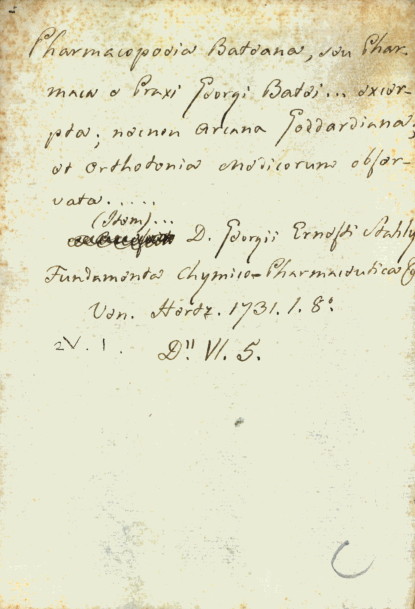 Pharmacopoeia Bateana, seu Phar-
maca e Praxi Georgi Batei... excer-
pta; necnon Arcana Goddardiana;
et Orthotonia Medicorum obser-
vata.....
(Item)...
D. Georgii Ernesti Stahly
Fundamenta Chymico-Pharmaceutica &
Ven. Hertz. 1731. 1. 8°.
2V. 1.
D" VI. 5.